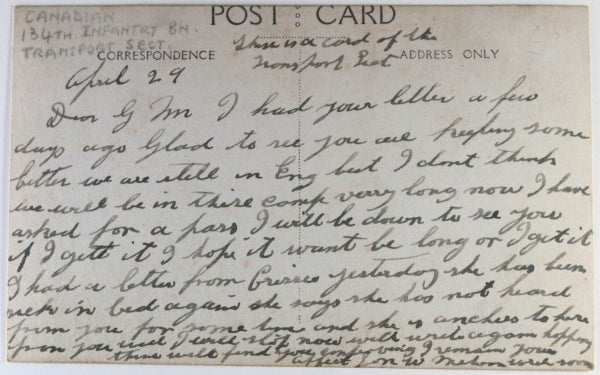 CANADIAN
134TH. INFANTRY BN.
TRANSPORT SECT.
POST CARD
CORRESPONDENCE
ADDRESS ONLY
This is a card of the
Transport Sect
April 29
Dear G M I had your letter a few
days ago Glad to see you are keeping some
better we are still in Eng but I dont think
we will be in thire camp verry long now I have
asked for a pass I will be down to see you
if I gett it I hope it want be long or I get it
I had a letter from yesterday she has been
sick in bed again she says she has not heard
from you for some time and she is anches to here
from you well I will stop now will write again hopping
thire will find you I remain yours
affect J W write soon